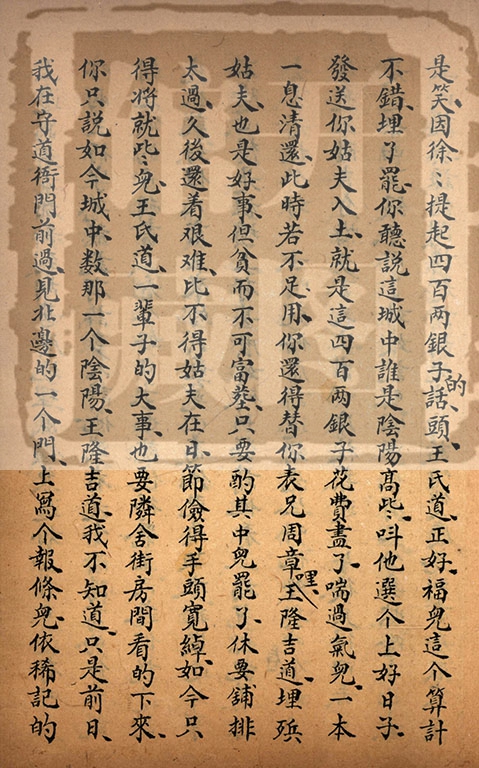 是笑、因徐〻提起四百两銀子的話頭、王氏道、正好、福兒這个算計
不錯、埋了罷、你聽說這城中誰是陰陽髙些、呌他選个上好日子、
發送你姑夫入土、就是這四百两銀子花費盡了、喘過氣兒、一本
一息清還、此時若不足用、你還得替你表兄周章哩、王隆吉道、埋殡
姑夫、也是好事、但貧而不可富葬、只要酌其中兒罷了、休要舖排
太過、久後還着艰难、比不得姑夫在日、節儉得手頭寬綽、如今只
得将就些兒、王氏道、一輩子的大事、也要隣舍街房間看的下來、
你只說如今城中、数那一个陰陽、王隆吉道、我不知道、只是前日、
我在守道衙門前過、見北邊的一个門、上寫个報條兒、依稀記的